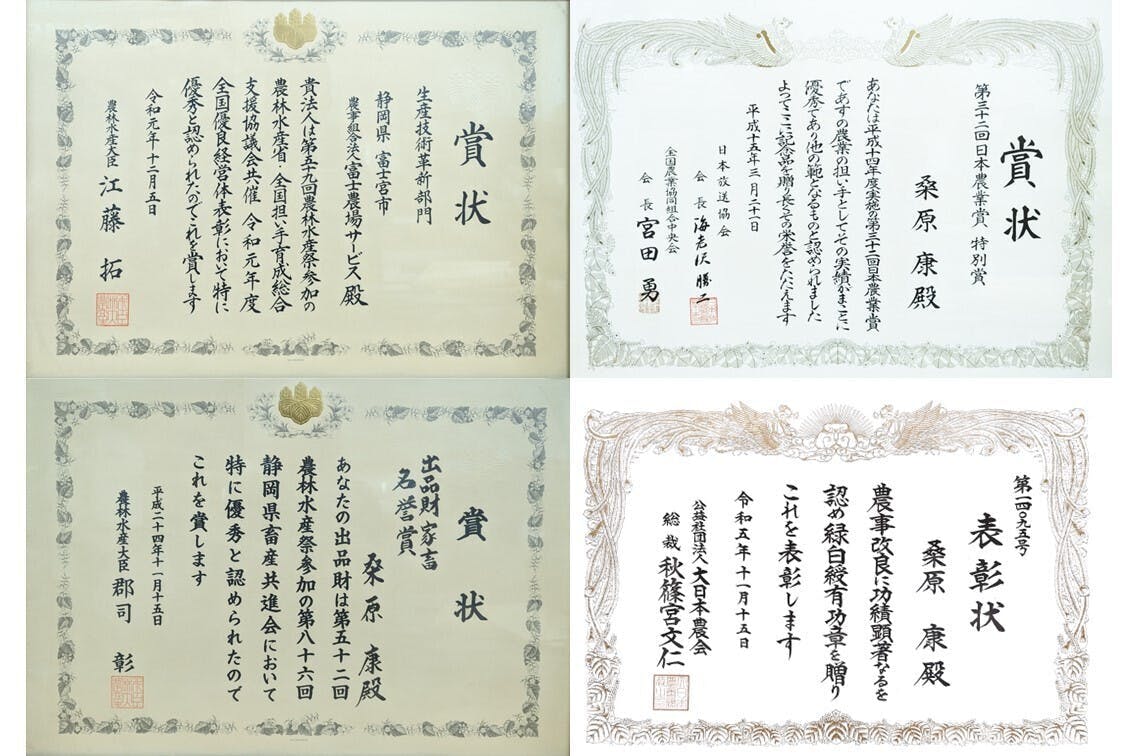 賞状
生産技術革新部門
静岡県 富士宮市
農事組合法人富士農場サービス殿
貴法人は第五十九回農林水産祭参加の
農林水産省・全国担い手育成総合
支援協議会共催 令和元年度
全国優良経営体表彰において特に
優秀と認められたのでこれを賞します
令和元年十二月五日
農林水産大臣 江藤 拓
賞状
第三十二回日本農業賞 特別賞
桑原 康殿
あなたは平成十四年度実施の第三十二回日本農業賞
であすの農業の担い手としてその実績がまことに
優秀であり他の範となるものと認められました
よってここに記念品を贈り長くその栄誉をたたえます
平成十五年三月二十一日
日本放送協会
会長 海老沢勝二
全国農業協同組合中央会
会長 宮田 勇
賞状
出品財 家畜
名誉賞
桑原 康殿
あなたの出品財は第五十二回
農林水産祭参加の第八十六回
静岡県畜産共進会において
特に優秀と認められたので
これを賞します
平成二十四年十一月十五日
農林水産大臣 郡司 彰
第一四〇九五号
表彰状
桑原 康殿
農事改良に功績顕著なるを
認め緑白綬有功章を贈り
これを表彰します
令和五年十一月十五日
公益社団法人大日本農会
総裁 秋篠宮文仁